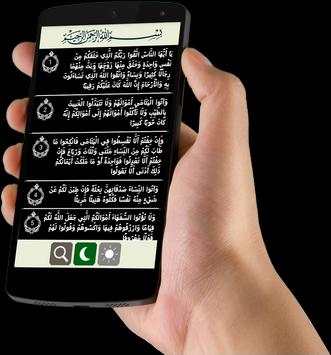 بِسْمِ اللَّهِ الرَّحْمَنِ الرَّحِيمِ
يَا أَيُّهَا النَّاسُ اتَّقُوا رَبَّكُمُ الَّذِي خَلَقَكُمْ مِنْ
نَفْسٍ وَاحِدَةٍ وَخَلَقَ مِنْهَا زَوْجَهَا وَبَثَّ مِنْهُمَا
1
رِجَالًا كَثِيرًا وَنِسَاءً وَاتَّقُوا اللَّهَ الَّذِي تَسَاءَلُونَ
بِهِ وَالْأَرْحَامَ إِنَّ اللَّهَ كَانَ عَلَيْكُمْ رَقِيبًا
وَآتُوا الْيَتَامَى أَمْوَالَهُمْ وَلَا تَتَبَدَّلُوا الْخَبِيثَ
2
بِالطَّيِّبِ وَلَا تَأْكُلُوا أَمْوَالَهُمْ إِلَى أَمْوَالِكُمْ إِنَّهُ
كَانَ حُوبًا كَبِيرًا
وَإِنْ خِفْتُمْ أَلَّا تُقْسِطُوا فِي الْيَتَامَى فَانْكِحُوا مَا
طَابَ لَكُمْ مِنَ النِّسَاءِ مَثْنَى وَثُلَاثَ وَرُبَاعَ فَإِنْ
3
خِفْتُمْ أَلَّا تَعْدِلُوا فَوَاحِدَةً أَوْ مَا مَلَكَتْ أَيْمَانُكُمْ
ذَلِكَ أَدْنَى أَلَّا تَعُولُوا
وَآتُوا النِّسَاءَ صَدُقَاتِهِنَّ نِحْلَةً فَإِنْ طِبْنَ لَكُمْ عَنْ
4
شَيْءٍ مِنْهُ نَفْسًا فَكُلُوهُ هَنِيئًا مَرِيئًا
وَلَا تُؤْتُوا السُّفَهَاءَ أَمْوَالَكُمُ الَّتِي جَعَلَ اللَّهُ لَكُمْ
5
قِيَامًا وَارْزُقُوهُمْ فِيهَا وَاكْسُوهُمْ وَقُولُوا لَهُمْ
قَوْلًا مَعْرُوفًا